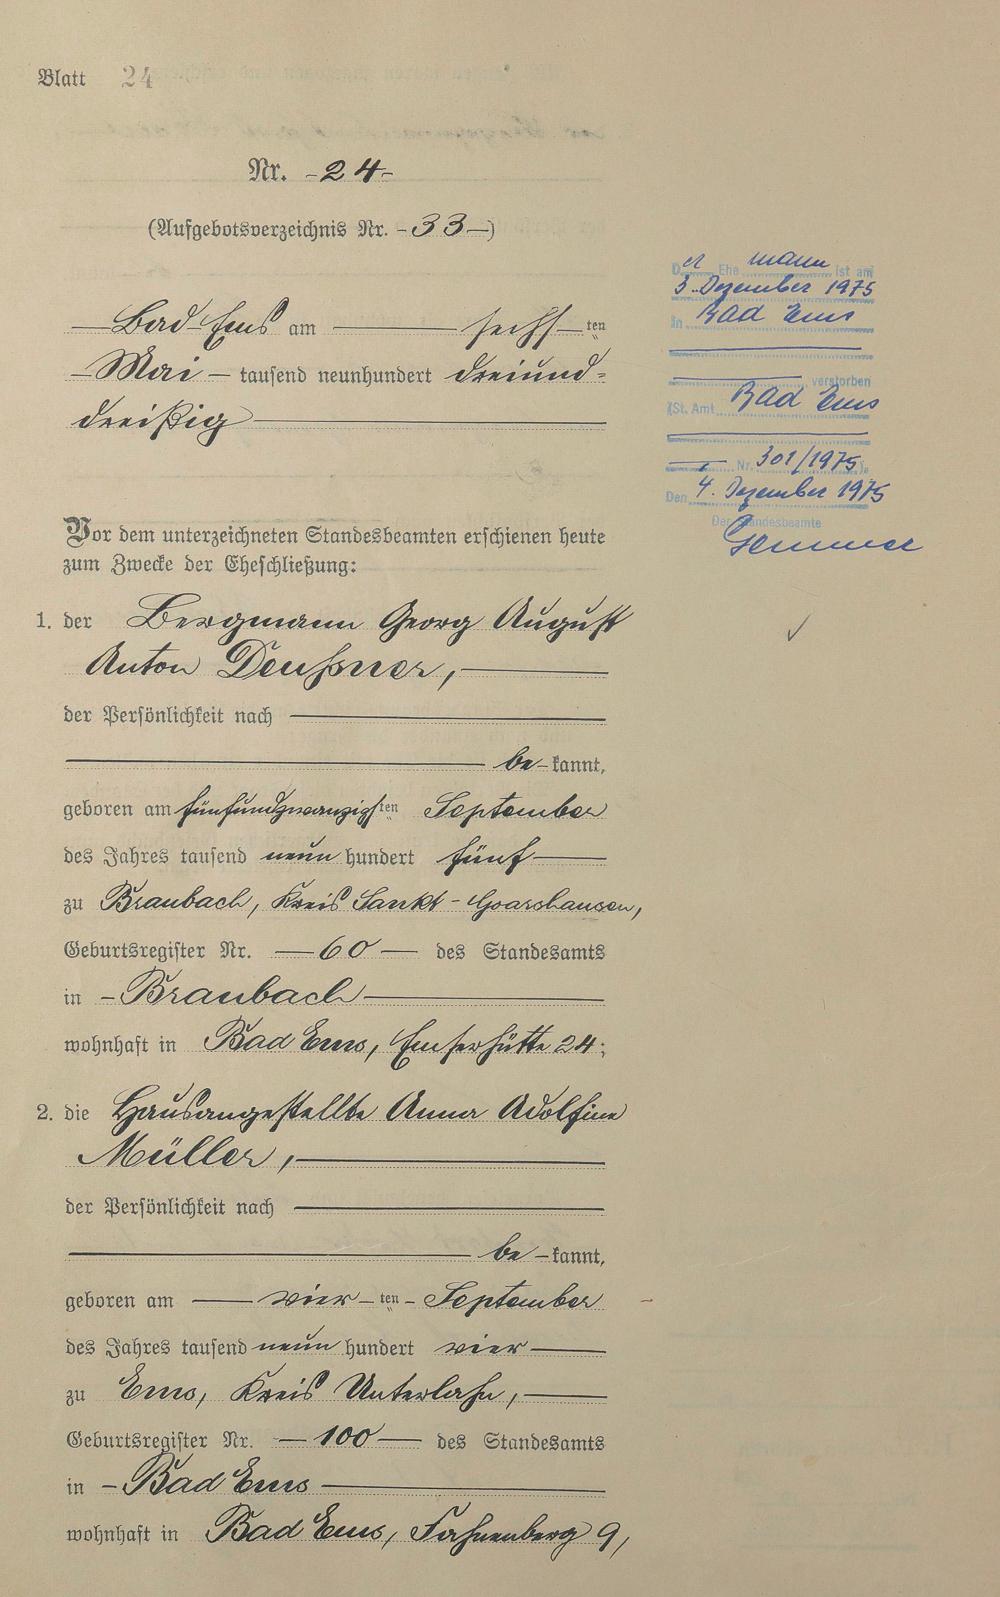 Blatt 24
Nr. -24-
(Aufgebotsverzeichnis Nr. -33-)
Bad Ems am sechsten
Mai - tausend neunhundert dreiund-
dreißig
Vor dem unterzeichneten Standesbeamten erschienen heute
zum Zwecke der Eheschließung:
1. der Bergmann Georg August
Anton Deußner,
der Persönlichkeit nach
be-kannt,
geboren am fünfundzwanzigsten September
des Jahres tausend neun hundert fünf
zu Braubach, Kreis Sankt-Goarshausen,
Geburtsregister Nr. 60 des Standesamts
in - Braubach
wohnhaft in Bad Ems, Emserhütte 24;
2. die Hausangestellte Anna Adolfine
Müller,
der Persönlichkeit nach
be-kannt,
geboren am vier-ten- September
des Jahres tausend neun hundert vier
zu Ems, Kreis Unterlahn,
Geburtsregister Nr. 100 des Standesamts
in - Bad Ems
wohnhaft in Bad Ems, Fahnenberg 9,
Der Ehemann ist am
3. Dezember 1975
in Bad Ems
verstorben
(St. Amt Bad Ems
Nr. 301/1975).
Den 4. Dezember 1975
Der Standesbeamte